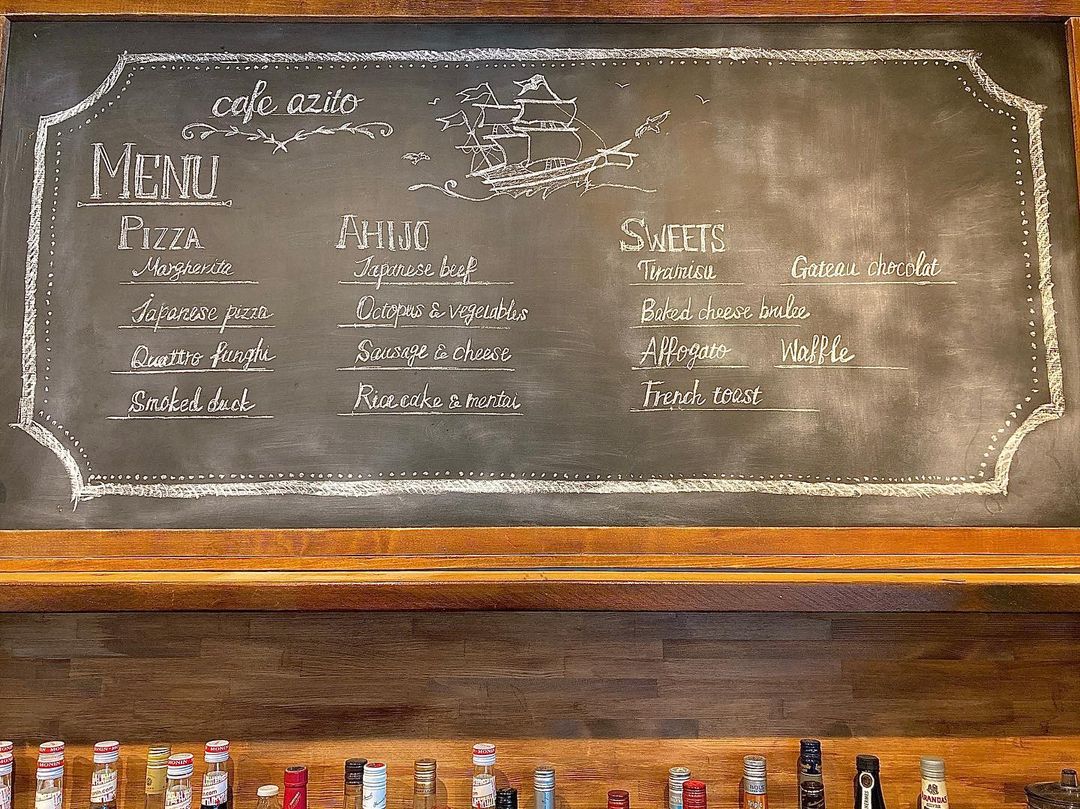 cafe azito
MENU
PIZZA
Margherita
Japanese pizza
Quattro funghi
Smoked duck
AHIJO
Japanese beef
Octopus & vegetables
Sausage & cheese
Rice cake & mentai
SWEETS
Tiramisu
Gateau chocolat
Baked cheese brulee
Affogato
Waffle
French toast
MONIN
MONIN
MONIN
MONIN
MONIN
MONIN